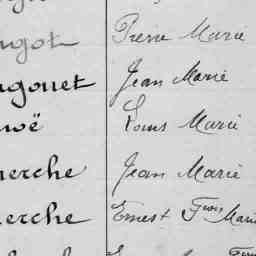 ngot Pierre Marie
ngouet Jean Marie
uoë Louis Marie
herche Jean Marie
herche Ernest Fçois Marie